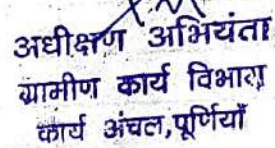 अधीक्षण अभियंता
ग्रामीण कार्य विभाग
कार्य अंचल,पूर्णियाँ